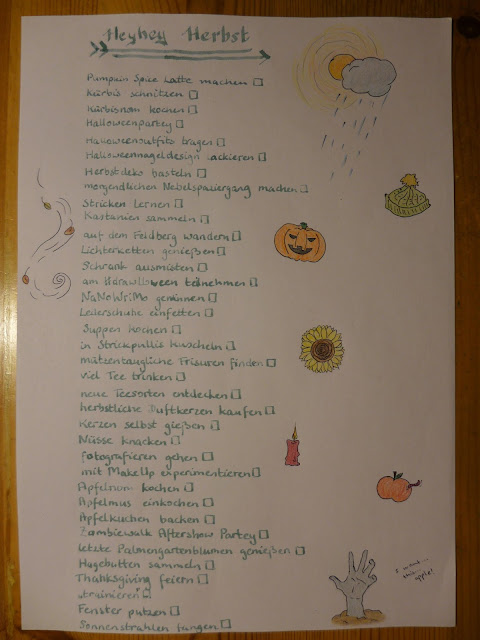 Heyhey Herbst
Pumpuin Spice Latte machen
Kürbis schnitzen
Kürbisnom kochen
Halloweenpartey
Halloweenoutfits tragen
Halloweennageldesign lackieren
Herbstdeko basteln
morgendlichen Nebelspaziergang machen
Stricken lernen
Kastanien sammeln
auf dem Feldberg wandern
Lichterketten genießen
Schrank ausmisten
am teilnehmen
NaNoWriMo gewinnen
Lederschuhe einfetten
Suppen kochen
in Strickpullis kuscheln
mützentaugliche Frisuren finden
viel Tee trinken
neue Teesorten entdecken
herbstliche Duftkerzen kaufen
Kerzen selbst gießen
Nüsse knacken
Fotografieren gehen
mit MakeUp experimentieren
Apfelnom kochen
Apfelmus einkochen
Apfelkuchen backen
Zombiewalk Aftershow Partey
letzte Palmengartenblumen genießen
Hagebutten sammeln
Thanksgiving feiern
„trainieren"
Fenster putzen
Sonnenstrahlen fangen
I want...
that...
apple!